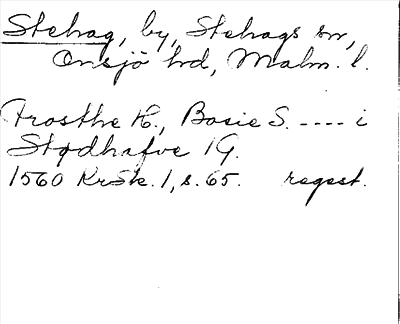 Stehag, by, Stehags sn,
Onsjö hd, Malm. l.
Frosthe H., Bosie S. ---- i
Stødhafve 1 G.
1560 KrSk. 1, s. 65. regest.